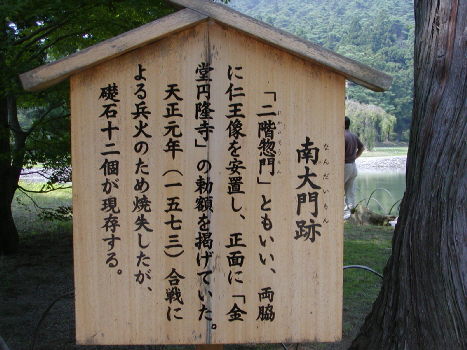 南大門跡
なんだいもん
「二階惣門」ともいい、両脇
に仁王像を安置し、正面に「金
堂円隆寺」の勅額を掲げていた。
天正元年（一五七三）合戦に
よる兵火のため焼失したが、
礎石十二個が現存する。